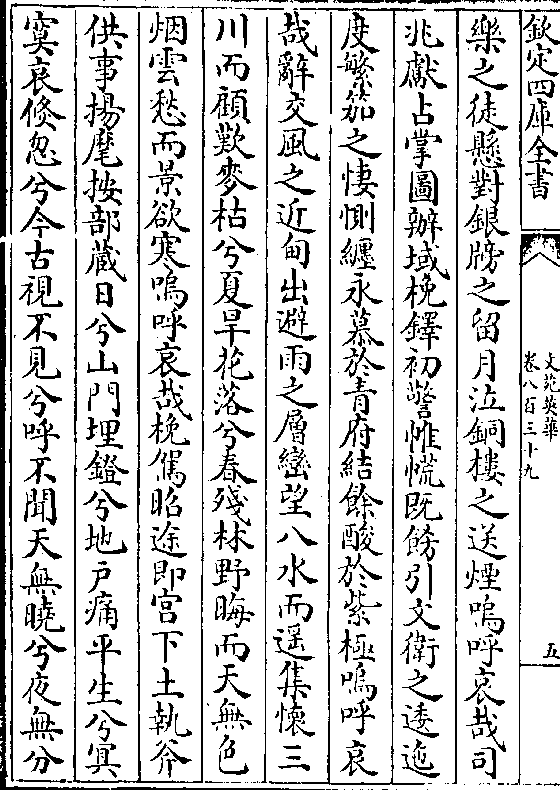 欽定四庫全書
文苑英華
卷八百三十九
五
樂之徒懸對銀牓之留月泣銅樓之送煙嗚呼哀哉司
兆獻占掌圖辦域梚鐸初警帷㡃既飭引文衛之逶迤
度繁笳之悽惻纒永慕於青府結餘酸於紫極嗚呼哀
哉辭交風之近甸出避雨之層巒望八水而遥集懷三
川而顧歎麥枯兮夏旱花落兮春殘林野晦而天無色
烟雲愁而景欲寒嗚呼哀哉梚儁昭途即宫下土執斧
供事揚麾按部蔵日兮山門埋鐙兮地戸痛平生兮冥
寞哀倐忽兮今古視不見兮呼不聞天無曉兮夜無分